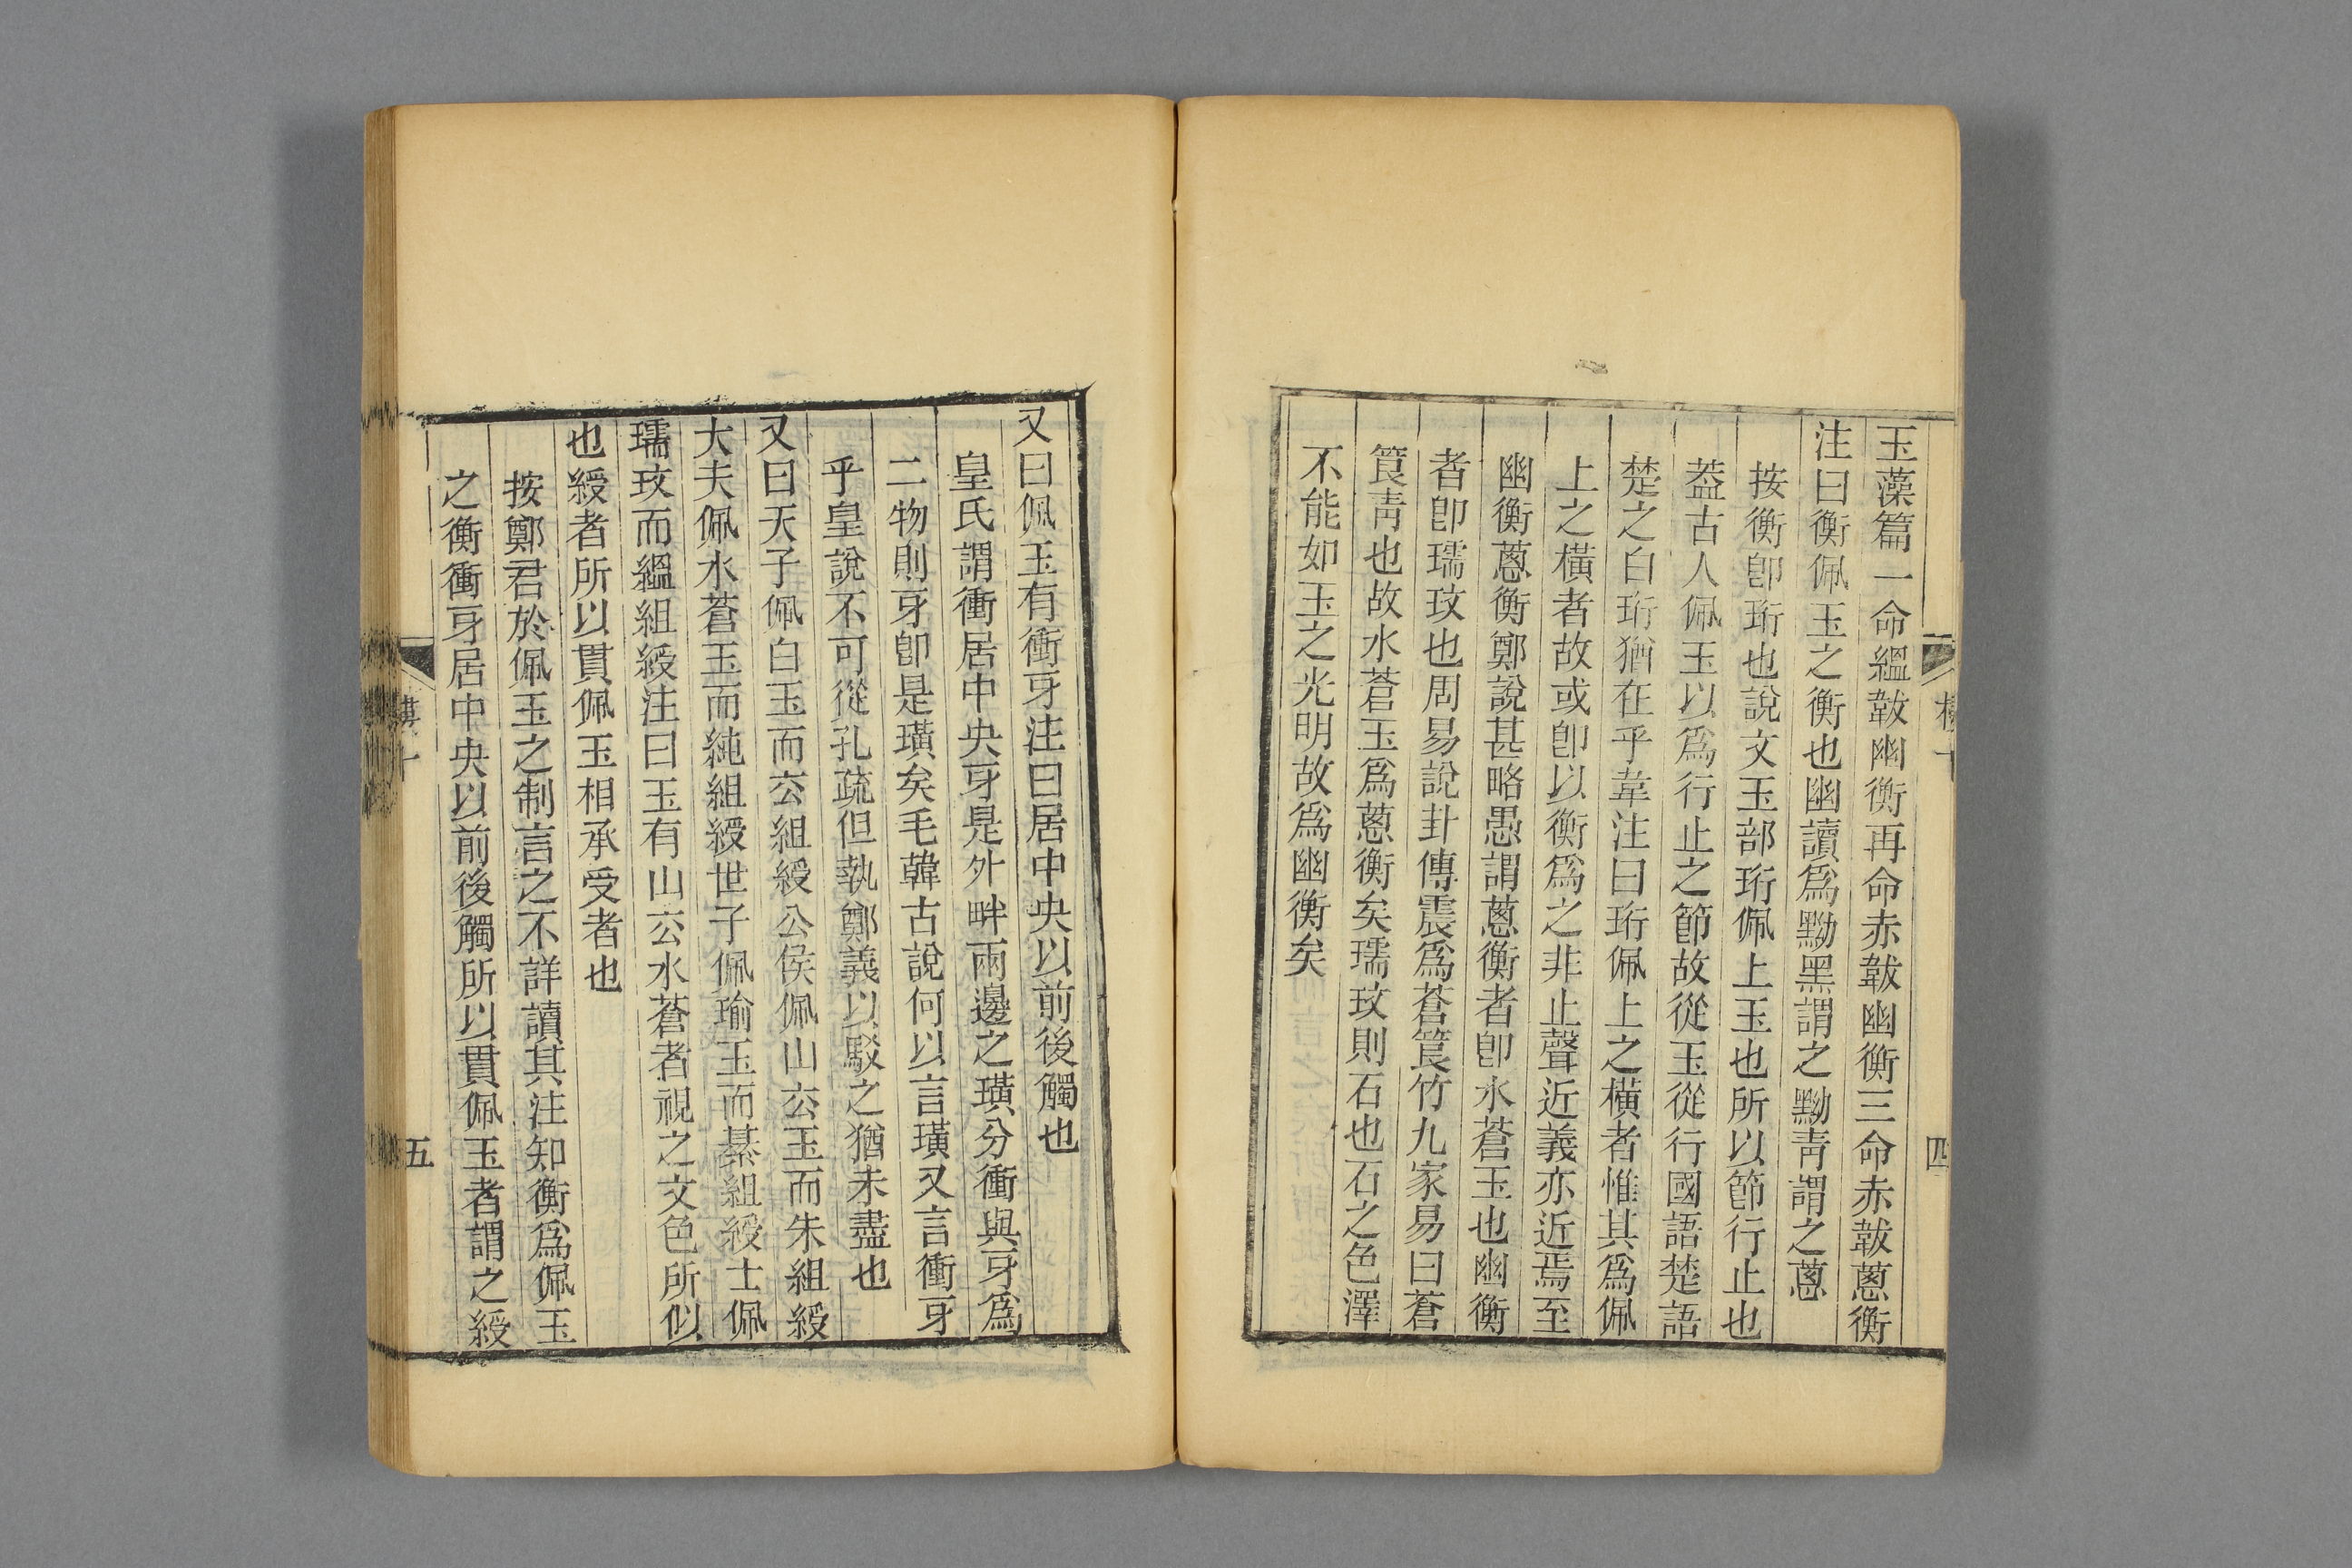 玉藻篇一命縕韍幽衡再命赤韍幽衡三命赤韍蔥衡
注曰衡佩玉之衡也幽讀爲黝黑謂之黝靑謂之蔥
按衡卽珩也說文玉部珩佩上玉也所以節行止也
葢古人佩玉以爲行止之節故從玉從行國語楚語
楚之白珩猶在乎韋注曰珩佩上之橫者惟其爲佩
上之橫者故或卽以衡爲之非止聲近義亦近焉至
幽衡蔥衡鄭說甚略愚謂蔥衡者卽水蒼玉也幽衡
者卽瓀玟也周易說卦傳震爲蒼筤竹九家易曰蒼
筤靑也故水蒼玉爲蔥衡矣瓀玟則石也石之色澤
不能如玉之光明故爲幽衡矣
四
又曰佩玉有衝牙注曰居中央以前後觸也
皇氏謂衝居中央牙是外畔兩邊之璜分衝與牙爲
二物則牙卽是璜矣毛韓古說何以言璜又言衝牙
乎皇說不可從孔疏但執鄭義以駁之猶未盡也
又曰天子佩白玉而玄組綬公侯佩山玄玉而朱組綬
大夫佩水蒼玉而純組綬世子佩瑜玉而綦組綬士佩
瓀玟而縕組綬注曰玉有山玄水蒼者視之文色所似
也綬者所以貫佩玉相承受者也
按鄭君於佩玉之制言之不詳讀其注知衡爲佩玉
之衡衝牙居中央以前後觸所以貫佩玉者謂之綬
五